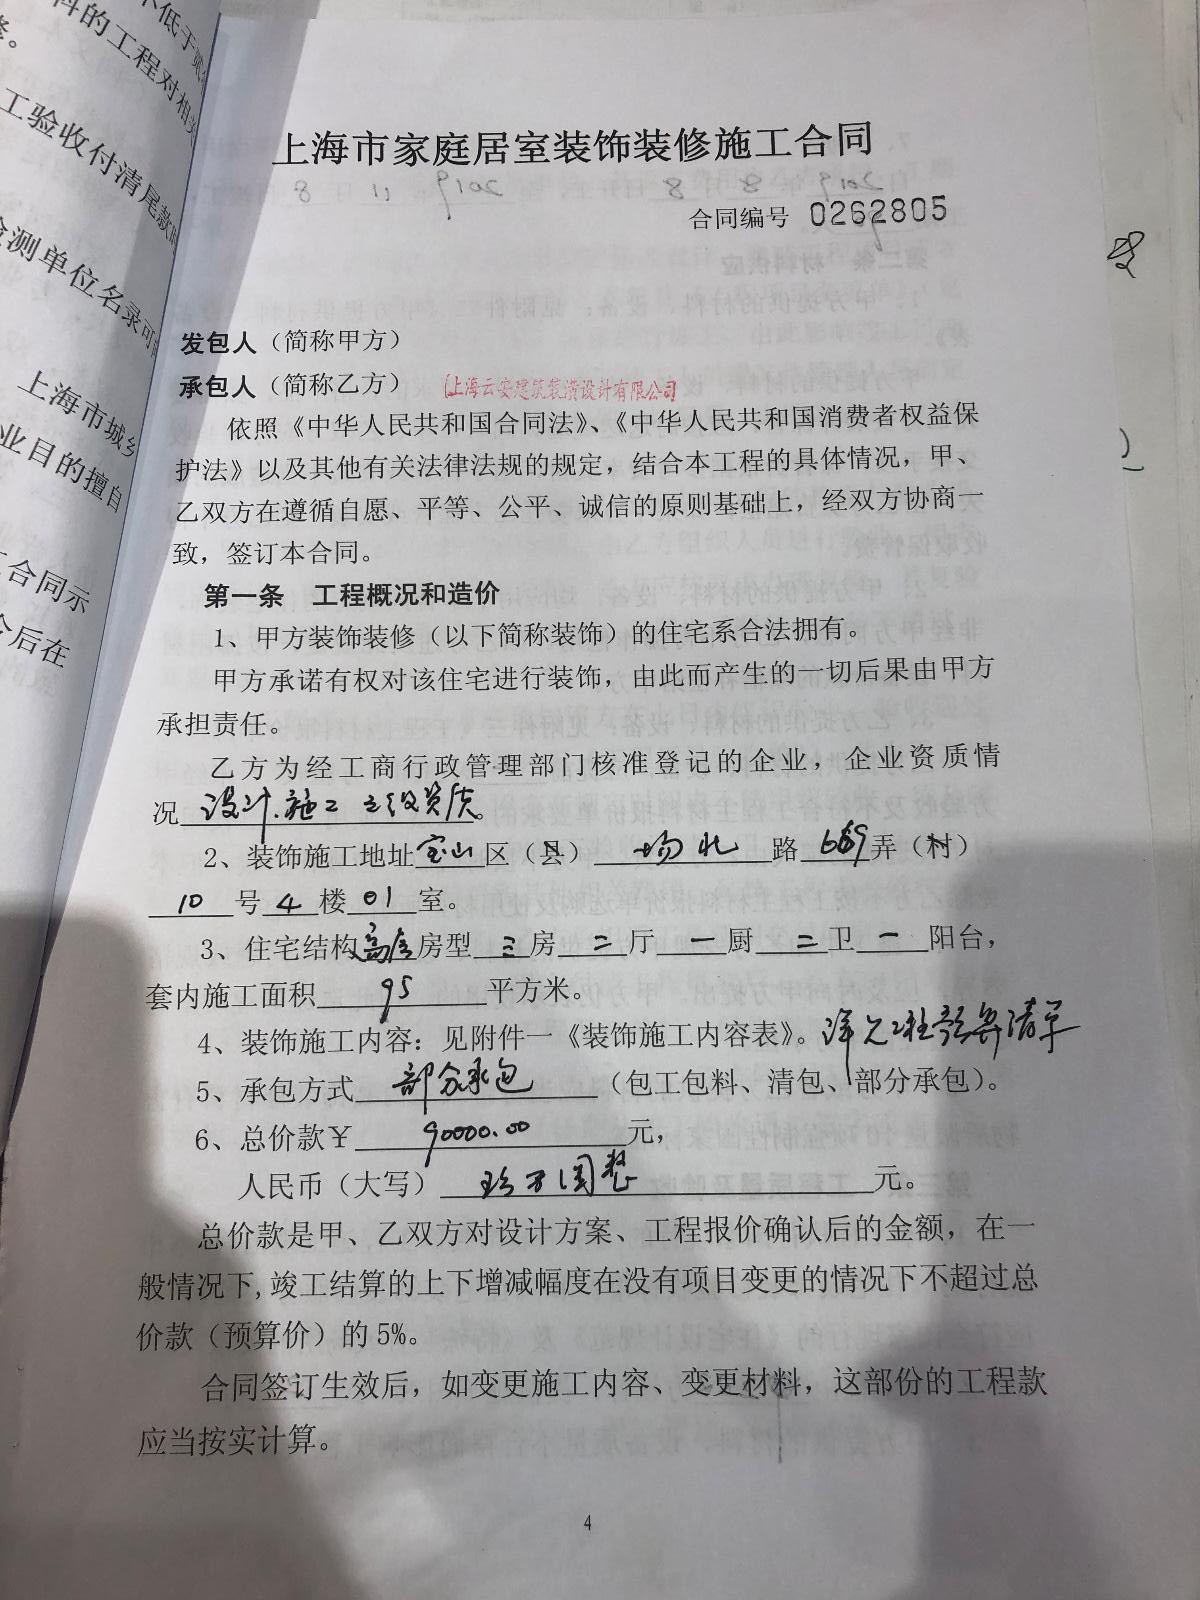 不低于贰
料的工程对相关
修。
工验收付清尾款
检测单位名录可
上海市城乡
业目的擅自
工合同示
后在
上海市家庭居室装饰装修施工合同
合同编号 0262805
发包人（简称甲方）
承包人（简称乙方）（上海云安建筑装潢设计有限公司）
依照《中华人民共和国合同法》、《中华人民共和国消费者权益保
护法》以及其他有关法律法规的规定，结合本工程的具体情况，甲、
乙双方在遵循自愿、平等、公平、诚信的原则基础上，经双方协商一
致，签订本合同。
第一条 工程概况和造价
1、甲方装饰装修（以下简称装饰）的住宅系合法拥有。
甲方承诺有权对该住宅进行装饰，由此而产生的一切后果由甲方
承担责任。
乙方为经工商行政管理部门核准登记的企业，企业资质情
况设计.施工 级资质。
2、装饰施工地址宝山区（县） 场北 路 669弄（村）
10 号 4 楼 01 室。
3、住宅结构高层房型 三 房 二 厅 一 厨 二 卫 一 阳台，
套内施工面积 95 平方米。
4、装饰施工内容：见附件一《装饰施工内容表》。详见工程预算清单
5、承包方式 部分承包 （包工包料、清包、部分承包）。
6、总价款￥ 90000.00 元，
人民币（大写） 玖万圆整 元。
总价款是甲、乙双方对设计方案、工程报价确认后的金额，在一
般情况下,竣工结算的上下增减幅度在没有项目变更的情况下不超过总
价款（预算价）的5%。
合同签订生效后，如变更施工内容、变更材料，这部份的工程款
应当按实计算。
4